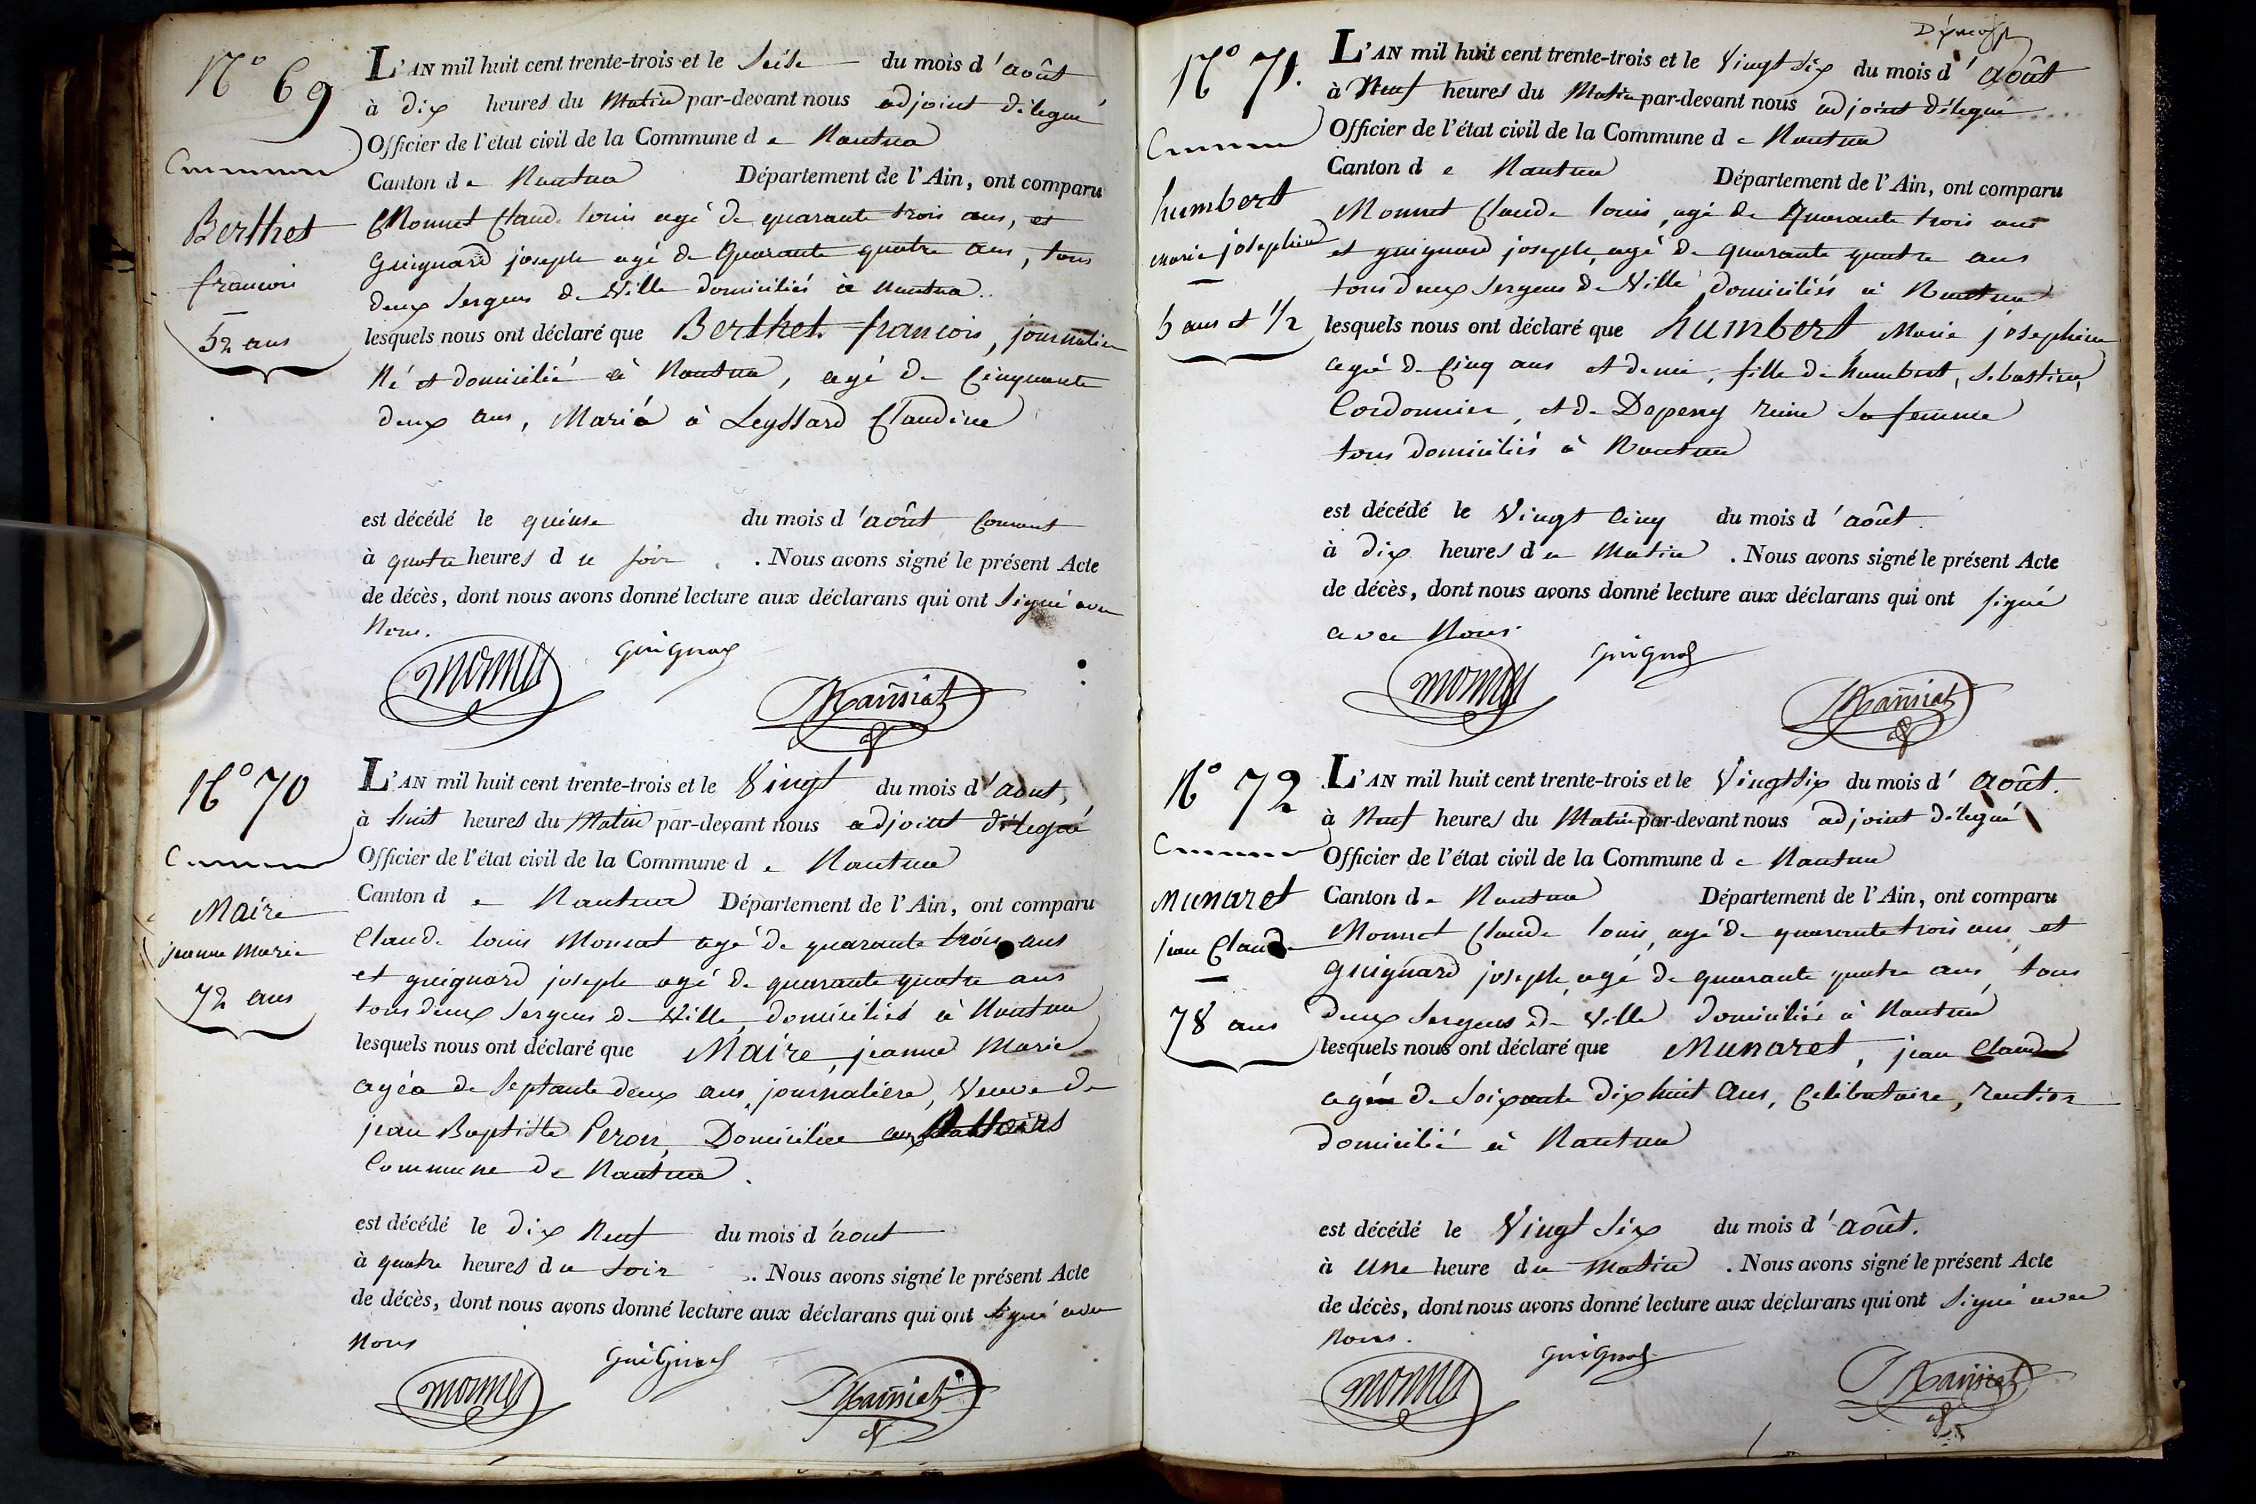 N° 69
Commune
Berthet
francois
52 ans
L'AN mil huit cent trente-trois et le Seise du mois d'août
à dix heures du Matin par-devant nous adjoint délegué
Officier de l'état civil de la Commune de Nantua
Canton de Nantua Département de l'Ain, ont comparu
Monnet Claude louis agé de quarante trois ans, et
Guignard joseph agé de Quarante quatre ans, tous
deux Sergens de Ville domiciliés à Nantua
lesquels nous ont déclaré que Berthet francois, journalier
Né et domicilié à Nantua, agé de Cinquante
deux ans, Marié à Leyssard Claudine
est décédé le quinse du mois d'août Courant
à quatre heures du soir. Nous avons signé le présent Acte
de décès, dont nous avons donné lecture aux déclarans qui ont Signé avec
Nous.
monnet guignard
N° 70
Commune
Maire
jeanne Marie
72 ans
L'AN mil huit cent trente-trois et le Vingt du mois d'aout,
à huit heures du Matin par-devant nous adjoint délegué
Officier de l'état civil de la Commune de Nantua
Canton de Nantua Département de l'Ain, ont comparu
Claude louis Monnet agé de quarante trois ans
et guignard joseph agé de quarante quatre ans
tous deux Sergens de Ville domiciliés à Nantua
lesquels nous ont déclaré que Maire, jeanne Marie
agée de Septante deux ans, journalière, Veuve de
jean Baptiste Peron, Domiciliée aux
Commune de Nantua.
est décédé le dix Neuf du mois d'aout
à quatre heures du Soir. Nous avons signé le présent Acte
de décès, dont nous avons donné lecture aux déclarans qui ont Signé avec
Nous
monnet guignard
N° 71.
Commune
humbert
marie josephine
5 ans et 1/2
L'AN mil huit cent trente-trois et le Vingt six du mois d'août
à Neuf heures du Matin par-devant nous adjoint délegué
Officier de l'état civil de la Commune de Nantua
Canton de Nantua Département de l'Ain, ont comparu
Monnet Claude louis, agé de Quarante trois ans
et guignard joseph, agé de quarante quatre ans
tous deux Sergens de Ville domiciliés à Nantua
lesquels nous ont déclaré que humbert Marie josephine
agée de Cinq ans et demi, fille de humbert, Sebastien,
Cordonnier, et de Depeny reine Sa femme
tous domiciliés à Nantua
est décédé le Vingt Cinq du mois d'août.
à dix heures du Matin. Nous avons signé le présent Acte
de décès, dont nous avons donné lecture aux déclarans qui ont signé
avec Nous.
monnet guignard
N° 72
Commune
Munaret
jean Claude
78 ans
L'AN mil huit cent trente-trois et le Vingt six du mois d'août.
à Neuf heures du Matin par-devant nous adjoint délegué
Officier de l'état civil de la Commune de Nantua
Canton de Nantua Département de l'Ain, ont comparu
Monnet Claude louis, agé de quarante trois ans, et
Guignard joseph, agé de quarante quatre ans, tous
deux Sergens de Ville domiciliés à Nantua
lesquels nous ont déclaré que Munaret, jean Claude
agé de Soixante dix huit Ans, Celibataire, rentier
domicilié à Nantua
est décédé le Vingt Six du mois d'août.
à une heure du Matin. Nous avons signé le présent Acte
de décès, dont nous avons donné lecture aux déclarans qui ont Signé avec
Nous.
monnet guignard